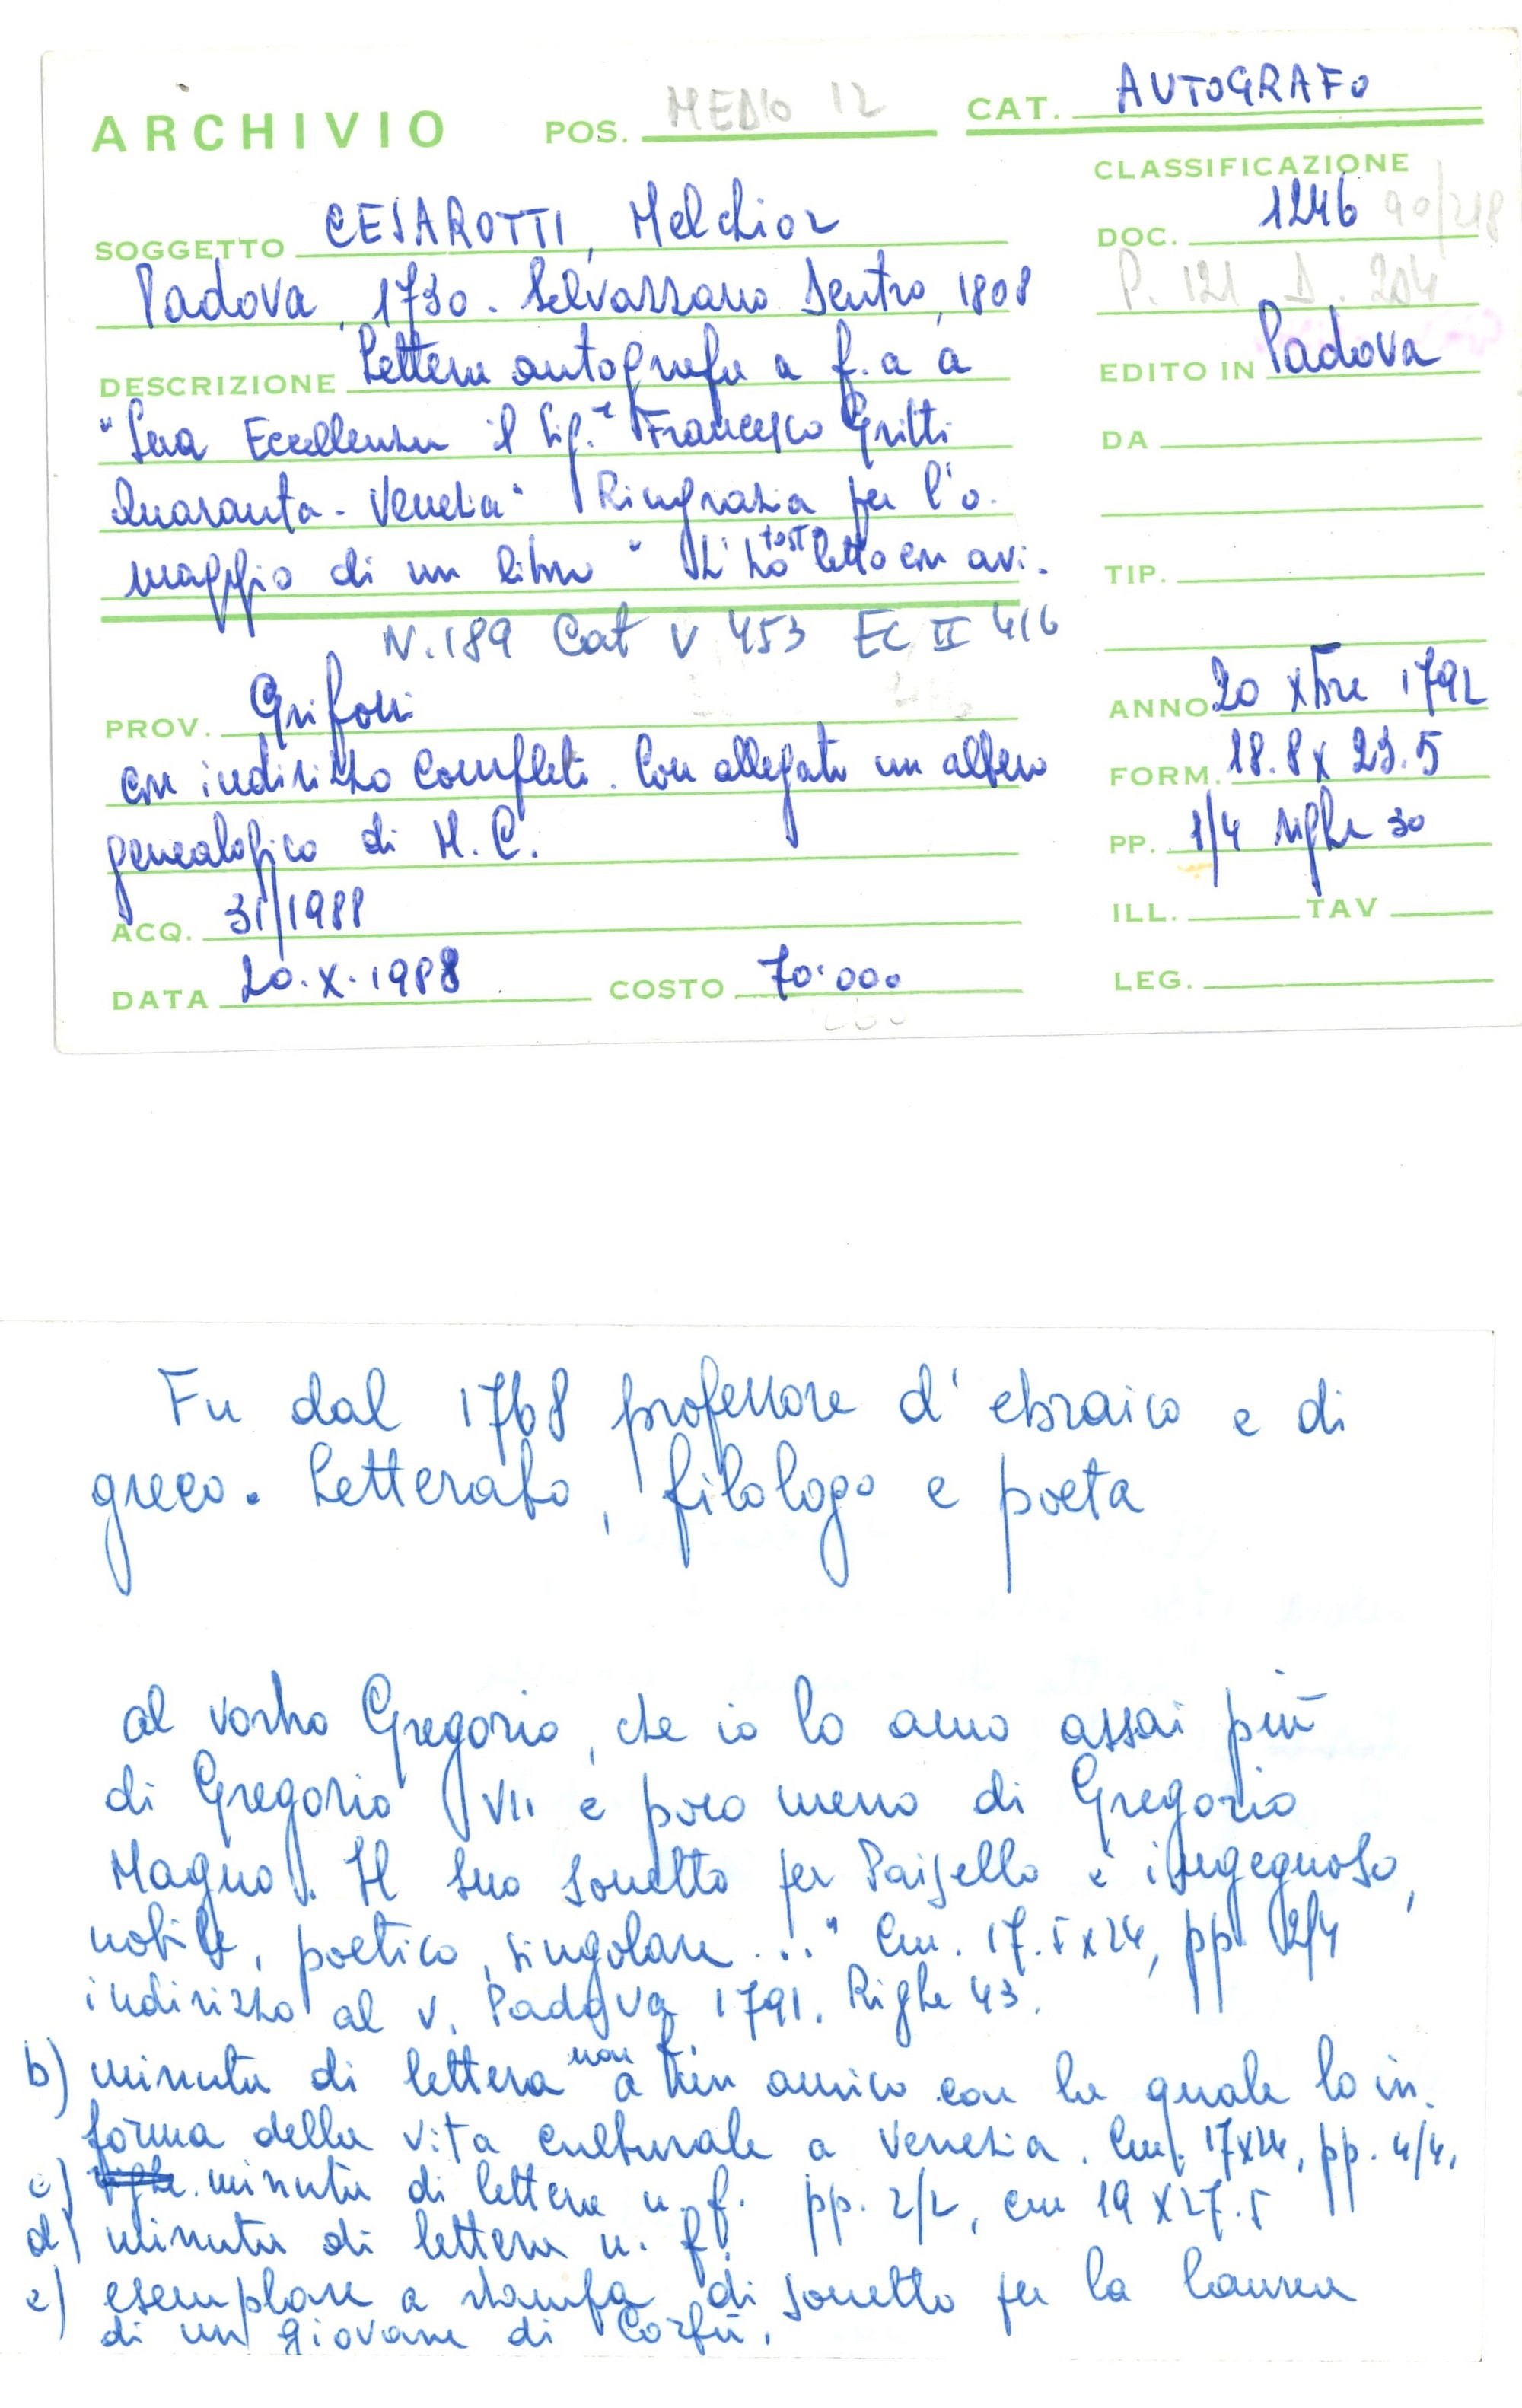 ARCHIVIO POS. MEDIO 12 CAT. AUTOGRAFO
CLASSIFICAZIONE
SOGGETTO CESAROTTI, Melchior DOC. 1246 90/218
Padova, 1730. Selvazzano Dentro, 1808 P. 121 D. 204
DESCRIZIONE Lettera autografa a f.a a EDITO IN Padova
"Sua Eccellenza il Sig.r Francesco Gritti DA
Quaranta - Venezia" Ringrazia per l'o-
maggio di un libro "L'ho tosto letto con avi- TIP.
N. 189 Cat V 453 EC II 416
PROV. Grifoni ANNO 20 Xbre 1792
con indirizzo completo. Con allegato un albero FORM. 18.8 x 23.5
genealogico di M. C. PP. 1/4 righe 30
ACQ. 31/1988 ILL. TAV
DATA 20.X.1988 COSTO 70.000 LEG.
Fu dal 1768 professore d'ebraico e di
greco. Letterato, filologo e poeta
al vostro Gregorio, che io lo amo assai più
di Gregorio VII e poco meno di Gregorio
Magno. Il suo sonetto per Paisello è ingegnoso,
nobile, poetico, singolare ..." Cm. 17.5x24, pp. 2/4
indirizzo al v. Padova 1791. Righe 43.
b) minuta di lettera non f. a un amico con la quale lo in-
forma della vita culturale a Venezia. Cm. 17x24, pp. 4/4,
c) minuta di lettera n. f. pp. 2/2, cm 19 x 27.5
d) minuta di lettera n. f.
e) esemplare a stampa di sonetto per la laurea
di un giovane di Corfù.